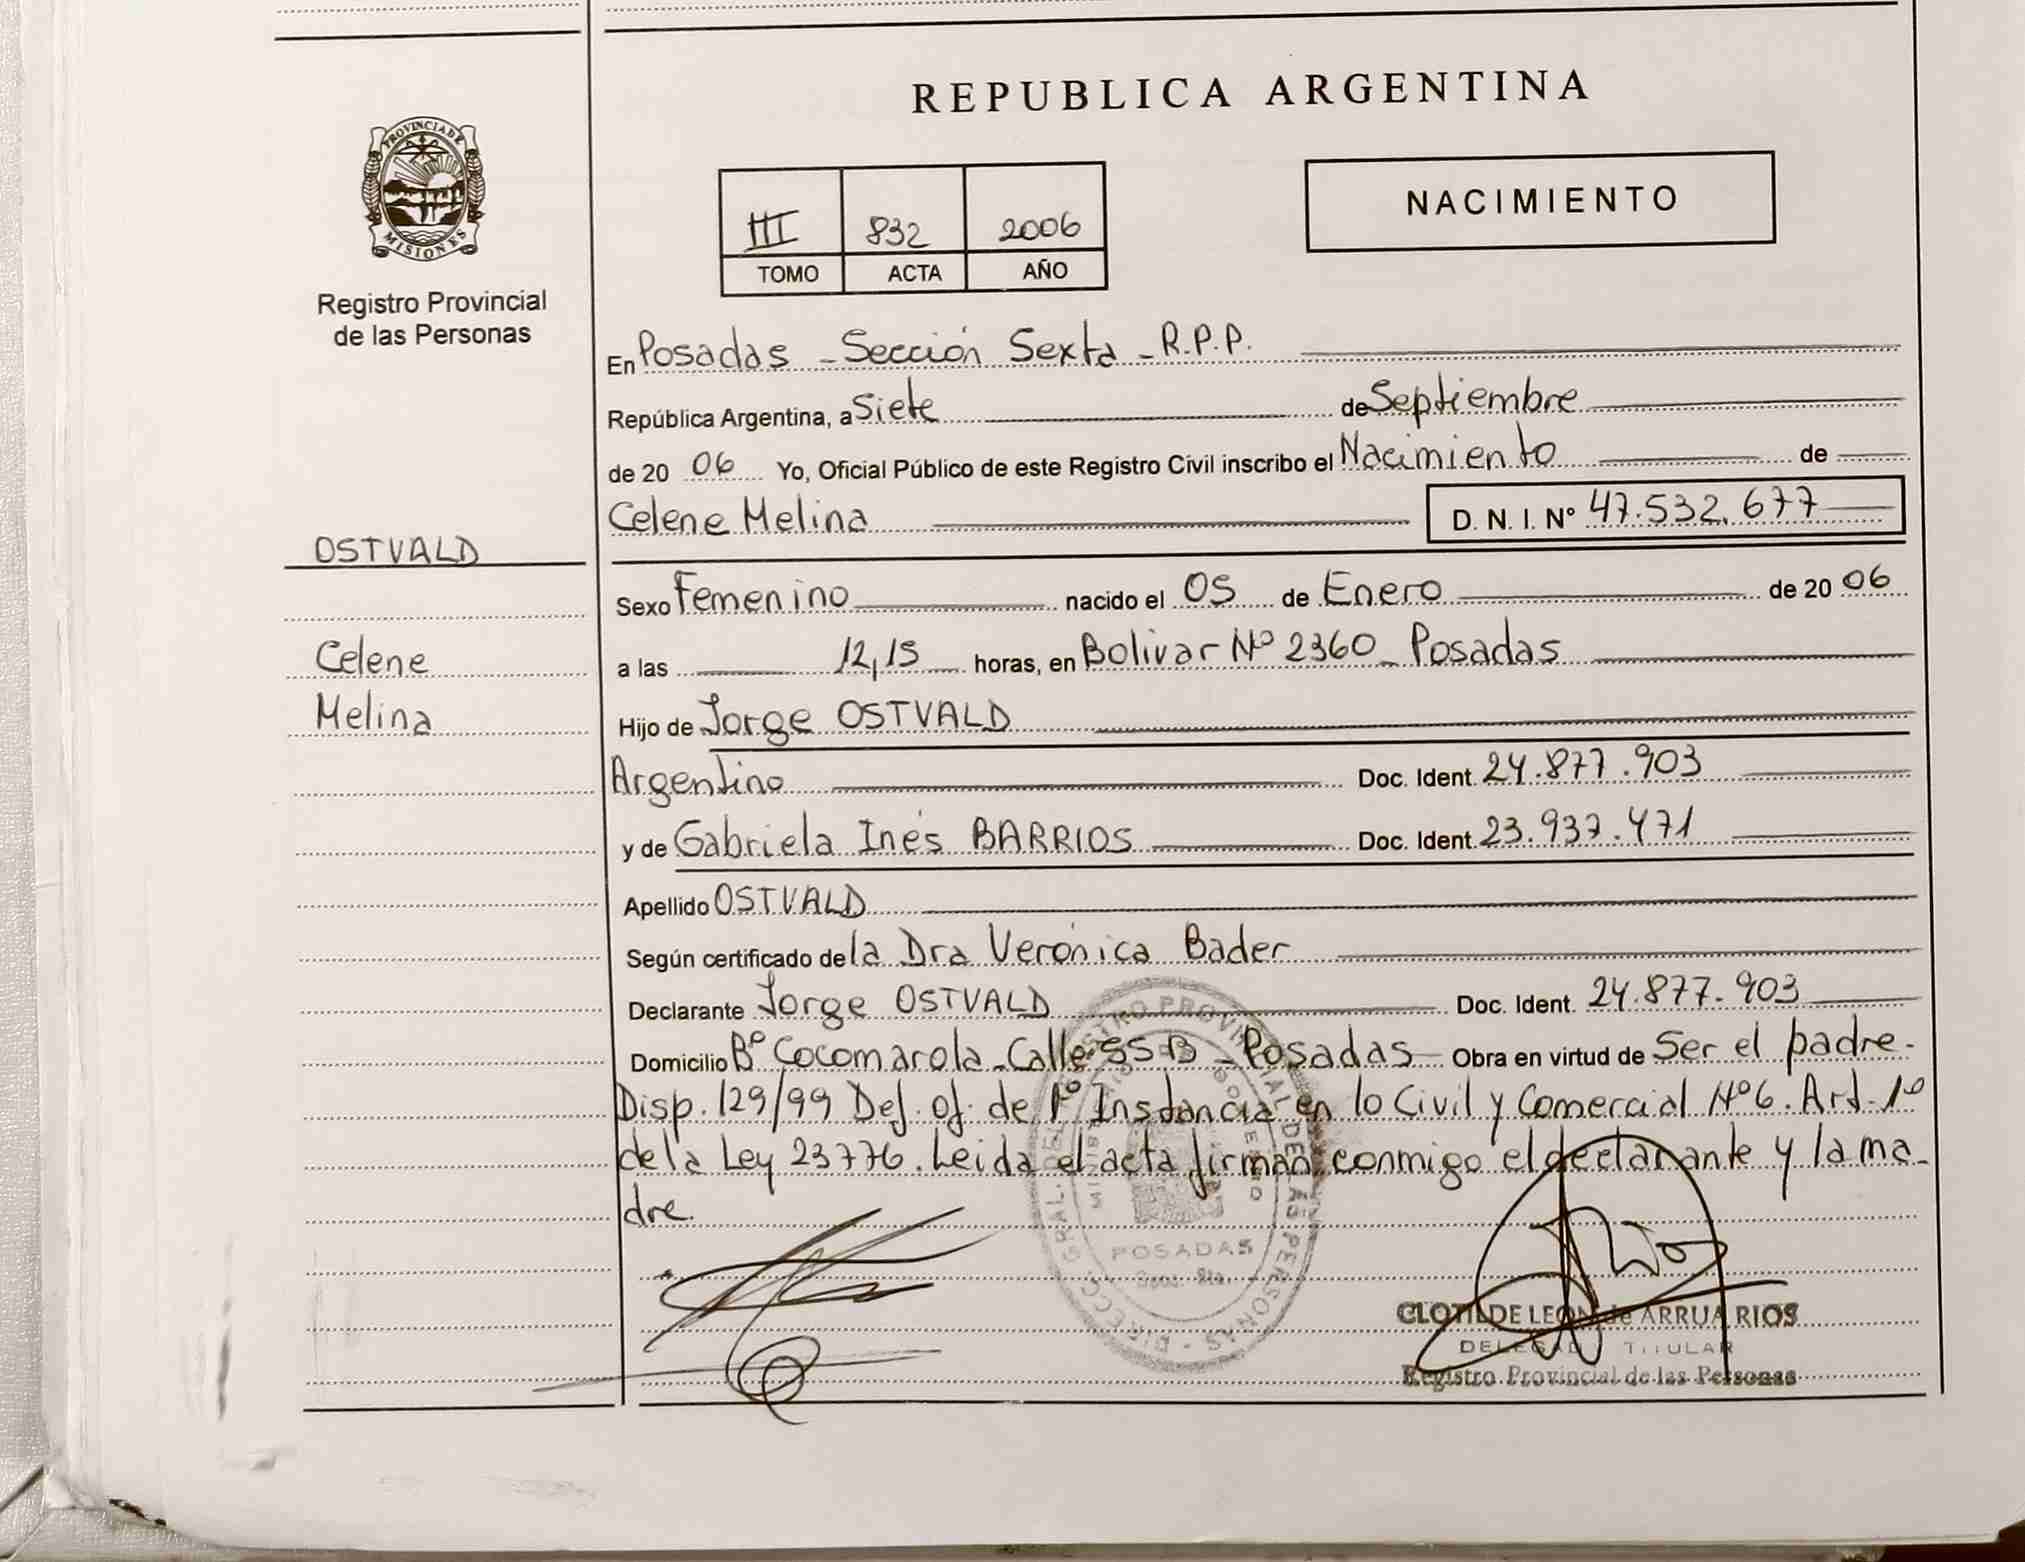 REPUBLICA ARGENTINA
PROVINCIA DE
MISIONES
Registro Provincial
de las Personas
III 832 2006
TOMO ACTA AÑO
NACIMIENTO
En Posadas - Sección Sexta - R.P.P.
República Argentina, a Siete de Septiembre
de 20 06 Yo, Oficial Público de este Registro Civil inscribo el Nacimiento de
Celene Melina D. N. I. Nº 47.532.677
OSTVALD
Sexo Femenino nacido el 05 de Enero de 20 06
Celene
a las 12,15 horas, en Bolivar Nº 2360 - Posadas
Melina
Hijo de Jorge OSTVALD
Argentino Doc. Ident. 24.877.903
y de Gabriela Inés BARRIOS Doc. Ident. 23.937.471
Apellido OSTVALD
Según certificado de la Dra Verónica Bader
Declarante Jorge OSTVALD Doc. Ident. 24.877.903
Domicilio Bº Cocomarola - Calle - Posadas Obra en virtud de Ser el padre.
Disp. 129/99 Def. of. de 1º Instancia en lo Civil y Comercial Nº6. Art. 1º
de la Ley 23776. Leida el acta firman conmigo el declarante y la ma-
dre.
DIRECC. GRAL. DEL REGISTRO PROVINCIAL DE LAS PERSONAS
MINISTERIO GOBIERNO
POSADAS
CLOTILDE LEON de ARRUA RIOS
DELEGADO TITULAR
Registro Provincial de las Personas